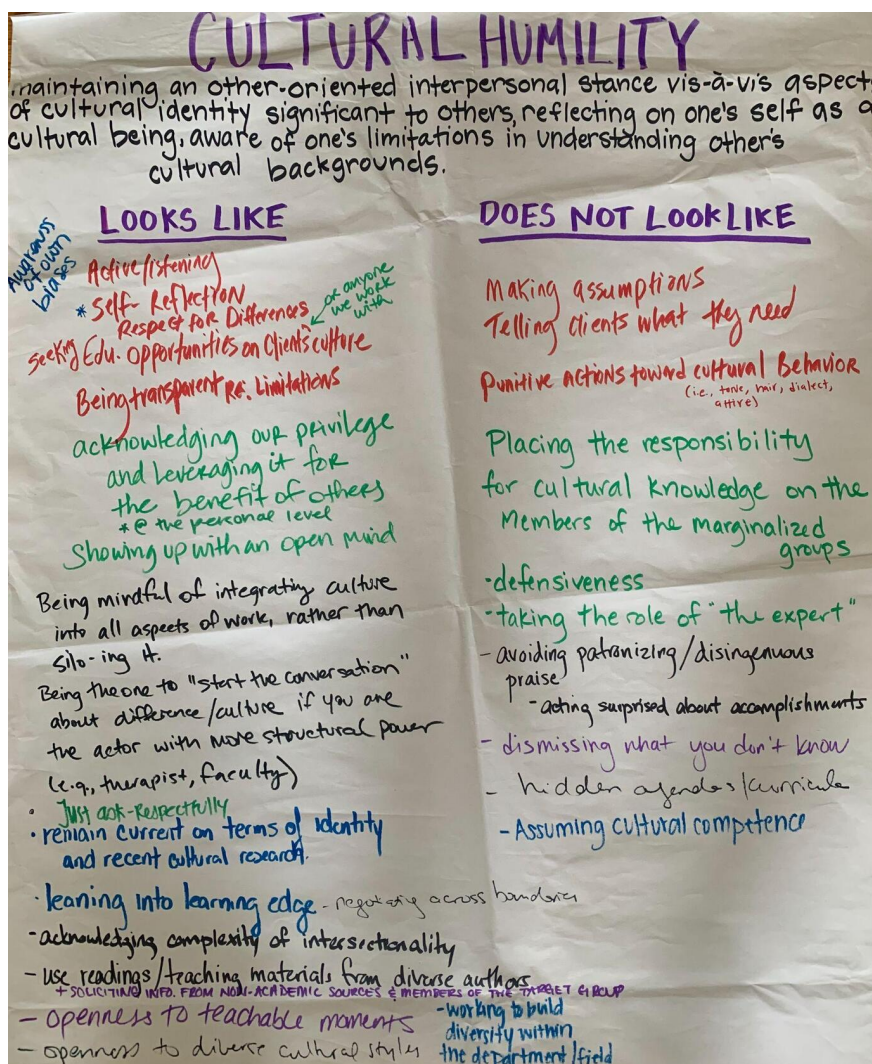 CULTURAL HUMILITY
maintaining an other-oriented interpersonal stance vis-à-vis aspects
of cultural identity significant to others, reflecting on one's self as a
cultural being, aware of one's limitations in understanding other's
cultural backgrounds.
LOOKS LIKE
Awareness
of own
biases
Active listening
* Self-Reflection
Respect for Differences
or anyone
we work
with
Seeking Edu. opportunities on Clients culture
Being transparent Re: Limitations
acknowledging our privilege
and leveraging it for
the benefit of others
* @ the personal level
Showing up with an open mind
Being mindful of integrating culture
into all aspects of work, rather than
silo-ing it.
Being the one to "start the conversation"
about difference/culture if you are
the actor with more structural power
(e.g., therapist, faculty)
· Just ask-Respectfully
· remain current on terms of identity
and recent cultural research.
· leaning into learning edge - negotiating across boundaries
- acknowledging complexity of intersectionality
- use readings/teaching materials from diverse authors
+ SOLICITING INFO. FROM NON-ACADEMIC SOURCES & MEMBERS OF THE TARGET GROUP
- openness to teachable moments
- openness to diverse cultural styles
- working to build
diversity within
the department/field
DOES NOT LOOK LIKE
Making assumptions
Telling clients what they need
Punitive actions toward cultural Behavior
(i.e., tone, hair, dialect,
attire)
Placing the responsibility
for cultural knowledge on the
Members of the marginalized
groups
· defensiveness
- taking the role of "the expert"
- avoiding patronizing/disingenuous
praise
- acting surprised about accomplishments
- dismissing what you don't know
- hidden agendas/curricula
- Assuming cultural competence